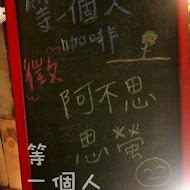 等一個人
咖啡
徵
阿不思
思螢
等
一個人